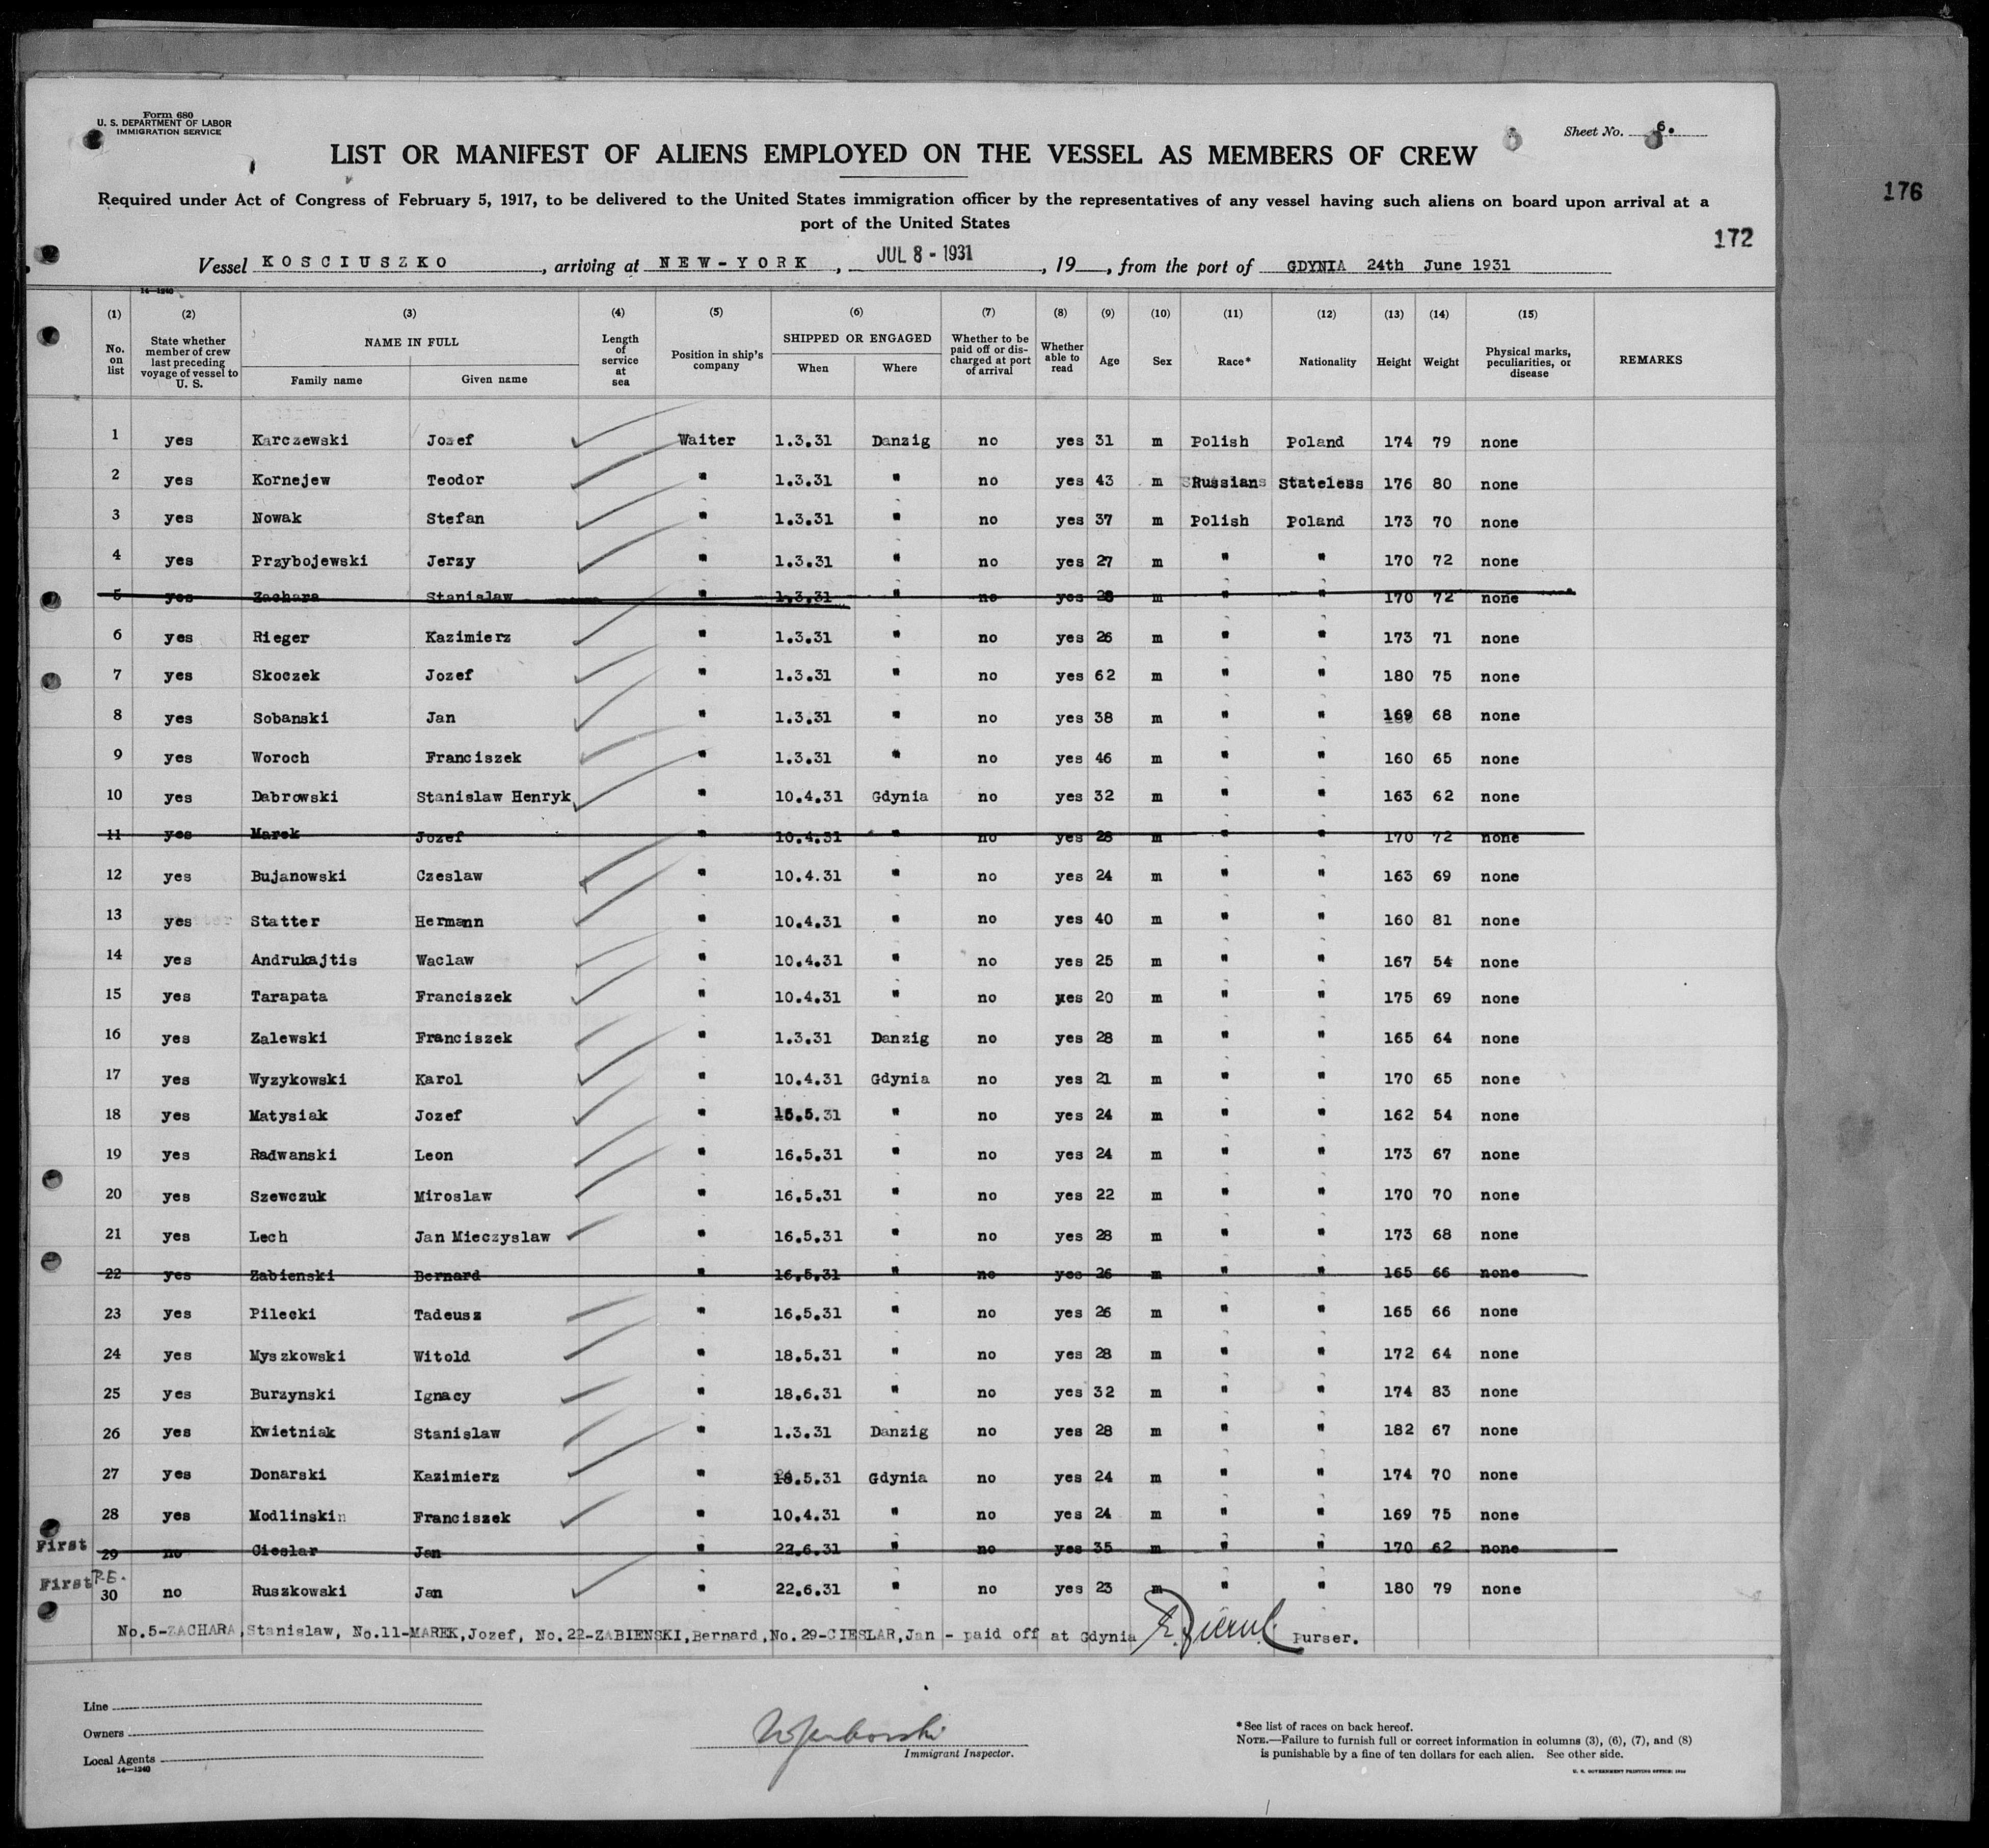 Form 680
U. S. DEPARTMENT OF LABOR
IMMIGRATION SERVICE
Sheet No. 6.
LIST OR MANIFEST OF ALIENS EMPLOYED ON THE VESSEL AS MEMBERS OF CREW
176
Required under Act of Congress of February 5, 1917, to be delivered to the United States immigration officer by the representatives of any vessel having such aliens on board upon arrival at a
port of the United States
172
Vessel KOSCIUSZKO, arriving at NEW-YORK, JUL 8 - 1931, 19__, from the port of GDYNIA 24th June 1931
14—1240
(1) (2) (3) (4) (5) (6) (7) (8) (9) (10) (11) (12) (13) (14) (15)
No. on list State whether member of crew last preceding voyage of vessel to U. S. NAME IN FULL Family name Given name Length of service at sea Position in ship's company SHIPPED OR ENGAGED When Where Whether to be paid off or discharged at port of arrival Whether able to read Age Sex Race* Nationality Height Weight Physical marks, peculiarities, or disease REMARKS
1 yes Karczewski Jozef Waiter 1.3.31 Danzig no yes 31 m Polish Poland 174 79 none
2 yes Kornejew Teodor " 1.3.31 " no yes 43 m Russian Stateless 176 80 none
3 yes Nowak Stefan " 1.3.31 " no yes 37 m Polish Poland 173 70 none
4 yes Przybojewski Jerzy " 1.3.31 " no yes 27 m " " 170 72 none
5 yes Zachara Stanislaw " 1.3.31 " no yes 28 m " " 170 72 none
6 yes Rieger Kazimierz " 1.3.31 " no yes 26 m " " 173 71 none
7 yes Skoczek Jozef " 1.3.31 " no yes 62 m " " 180 75 none
8 yes Sobanski Jan " 1.3.31 " no yes 38 m " " 169 68 none
9 yes Woroch Franciszek " 1.3.31 " no yes 46 m " " 160 65 none
10 yes Dabrowski Stanislaw Henryk " 10.4.31 Gdynia no yes 32 m " " 163 62 none
11 yes Marek Jozef " 10.4.31 " no yes 28 m " " 170 72 none
12 yes Bujanowski Czeslaw " 10.4.31 " no yes 24 m " " 163 69 none
13 yes Statter Hermann " 10.4.31 " no yes 40 m " " 160 81 none
14 yes Andrukajtis Waclaw " 10.4.31 " no yes 25 m " " 167 54 none
15 yes Tarapata Franciszek " 10.4.31 " no yes 20 m " " 175 69 none
16 yes Zalewski Franciszek " 1.3.31 Danzig no yes 28 m " " 165 64 none
17 yes Wyzykowski Karol " 10.4.31 Gdynia no yes 21 m " " 170 65 none
18 yes Matysiak Jozef " 15.5.31 " no yes 24 m " " 162 54 none
19 yes Radwanski Leon " 16.5.31 " no yes 24 m " " 173 67 none
20 yes Szewczuk Miroslaw " 16.5.31 " no yes 22 m " " 170 70 none
21 yes Lech Jan Mieczyslaw " 16.5.31 " no yes 28 m " " 173 68 none
22 yes Zabienski Bernard " 16.5.31 " no yes 26 m " " 165 66 none
23 yes Pilecki Tadeusz " 16.5.31 " no yes 26 m " " 165 66 none
24 yes Myszkowski Witold " 18.5.31 " no yes 28 m " " 172 64 none
25 yes Burzynski Ignacy " 18.6.31 " no yes 32 m " " 174 83 none
26 yes Kwietniak Stanislaw " 1.3.31 Danzig no yes 28 m " " 182 67 none
27 yes Donarski Kazimierz " 18.5.31 Gdynia no yes 24 m " " 174 70 none
28 yes Modlinskin Franciszek " 10.4.31 " no yes 24 m " " 169 75 none
First 29 no Cieslar Jan " 22.6.31 " no yes 35 m " " 170 62 none
First P.E. 30 no Ruszkowski Jan " 22.6.31 " no yes 23 m " " 180 79 none
No.5-ZACHARA,Stanislaw, No.11-MAREK,Jozef, No.22-ZABIENSKI,Bernard,No.29-CIESLAR,Jan - paid off at Gdynia Purser.
Line
Owners
Local Agents
14—1240
Immigrant Inspector.
*See list of races on back hereof.
NOTE.—Failure to furnish full or correct information in columns (3), (6), (7), and (8)
is punishable by a fine of ten dollars for each alien. See other side.
U. S. GOVERNMENT PRINTING OFFICE: 1930